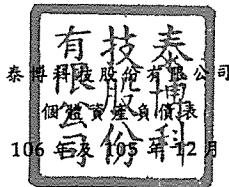 泰博科技股份有限公司
個體資產負債表
106 年及 105 年 12 月
泰博科
技股份
有限公司